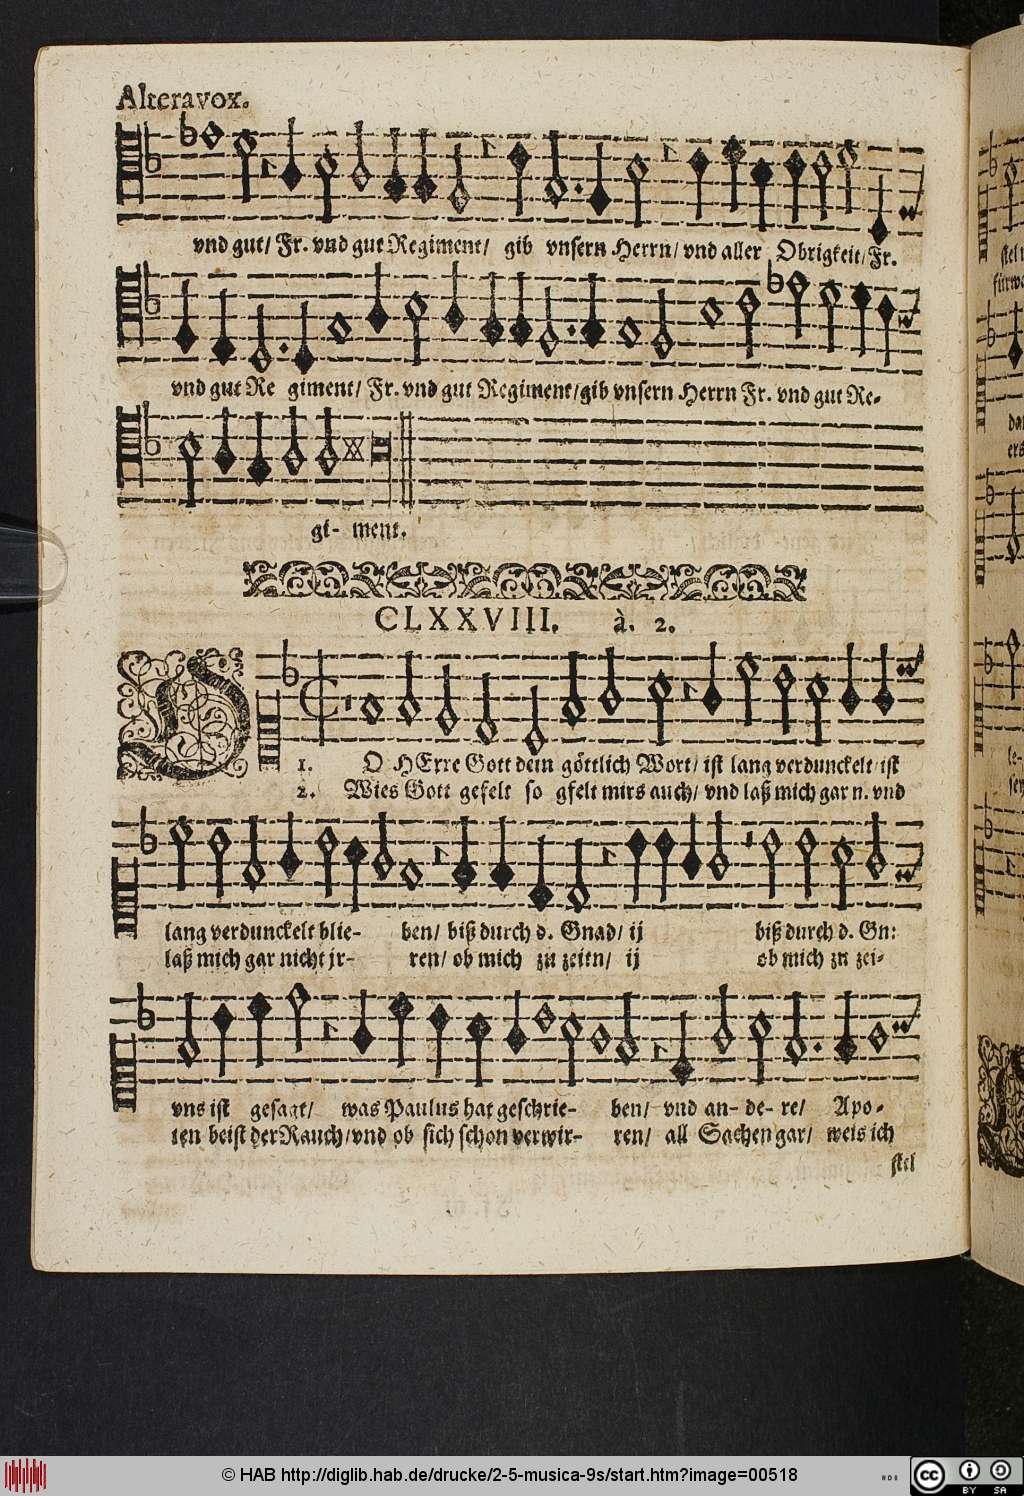 Alteravox.
vnd gut/ Fr. vnd gut Regiment/ gib vnsern Herrn/ vnd aller Obrigkeit/ Fr.
vnd gut Re giment/ Fr. vnd gut Regiment/gib vnsern Herrn Fr. vnd gut Re-
gi- ment.
CLXXVIII. à. 2.
1. O HErre Gott dein göttlich Wort/ ist lang verdunckelt/ ist
2. Wies Gott gefelt so gfelt mirs auch/ vnd laß mich gar n. vnd
lang verdunckelt blie- ben/ biß durch d. Gnad/ ij biß durch d. Gn:
laß mich gar nicht jr- ren/ ob mich zu zeiten/ ij ob mich zu zei-
vns ist gesagt/ was Paulus hat geschrie- ben/ vnd an- de- re/ Apo-
ten beist der Rauch/vnd ob sich schon verwir- ren/ all Sachen gar/ weis ich
stel
© HAB http://diglib.hab.de/drucke/2-5-musica-9s/start.htm?image=00518
cc BY SA